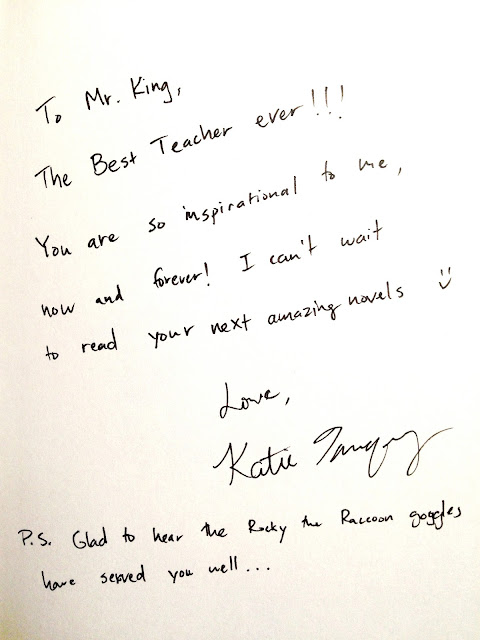 To Mr. King,
The Best Teacher ever!!!
You are so inspirational to me,
now and forever! I can't wait
to read your next amazing novels :)
Love,
Katie
P.S. Glad to hear the Rocky the Raccoon goggles
have served you well...